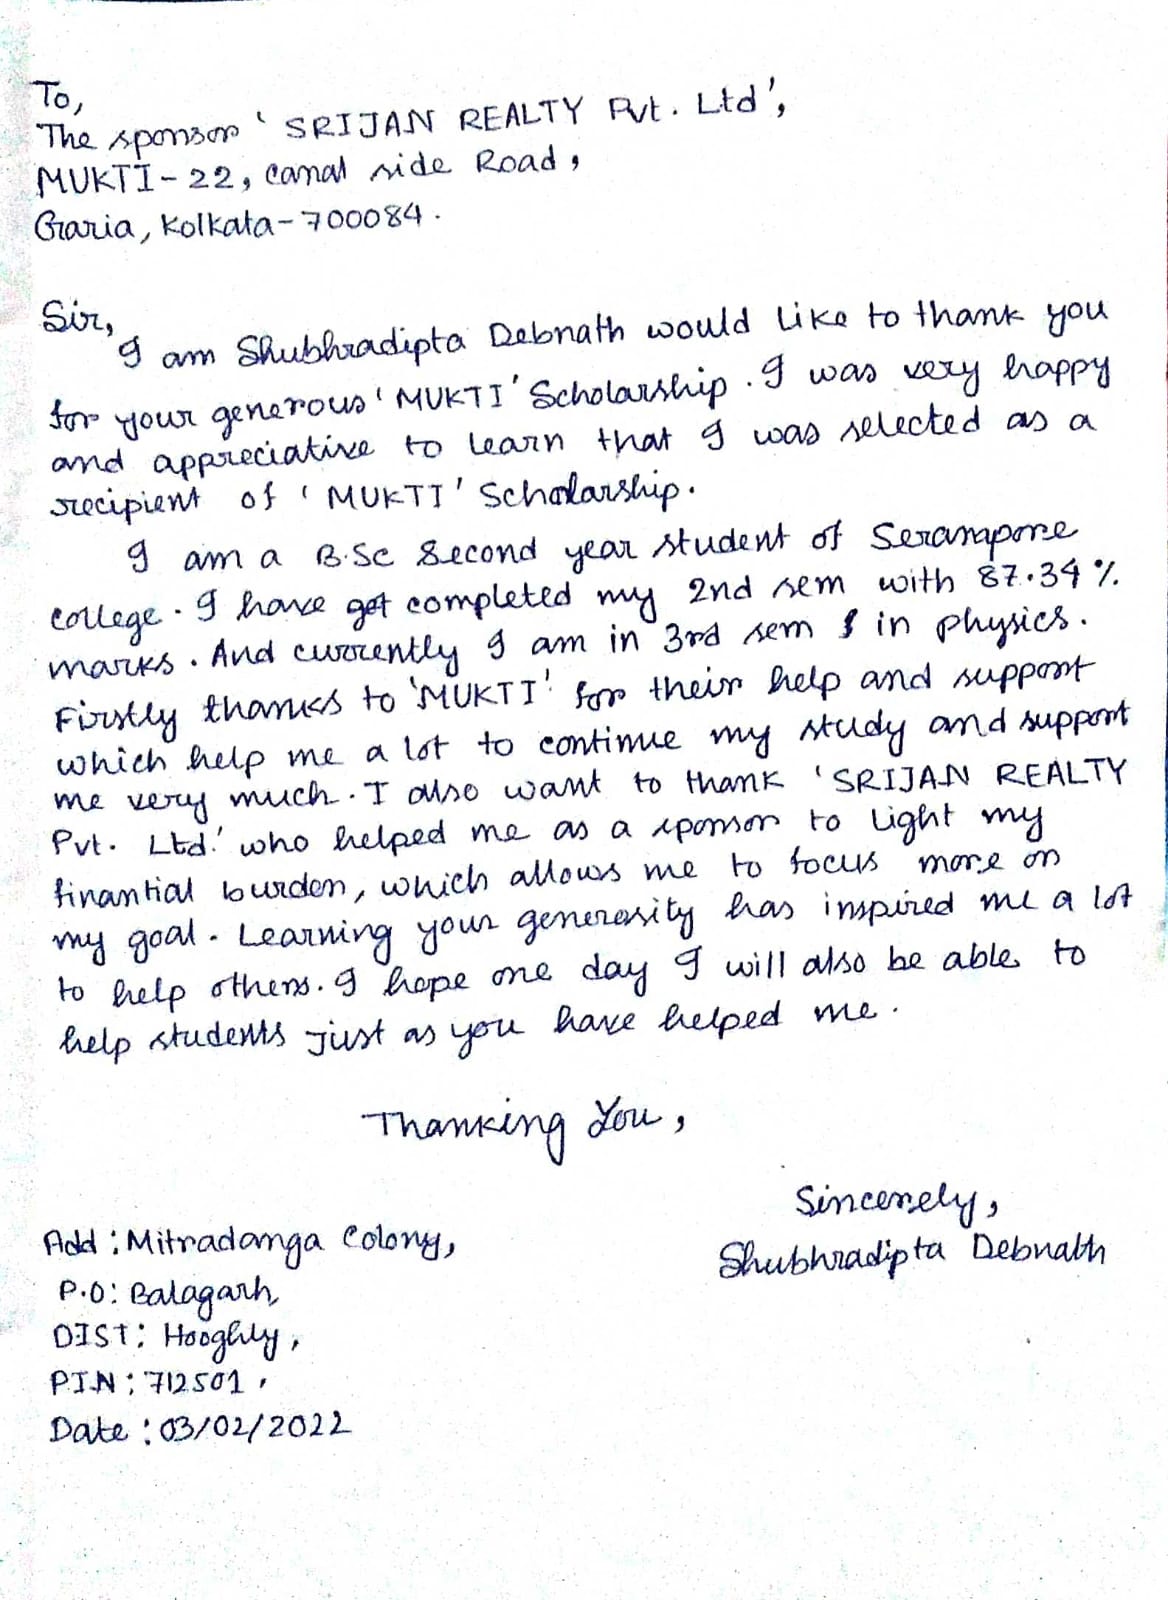 To,
The sponsor ' SRIJAN REALTY Pvt. Ltd',
MUKTI-22, canal side Road,
Garia, Kolkata-700084.
Sir,
I am Shubhradipta Debnath would like to thank you
for your generous 'MUKTI' Scholarship. I was very happy
and appreciative to learn that I was selected as a
recipient of 'MUKTI' Scholarship.
I am a B.Sc second year student of Serampore
college. I have get completed my 2nd sem with 87.34%
marks. And currently I am in 3rd sem in physics.
Firstly thanks to 'MUKTI' for their help and support
which help me a lot to continue my study and support
me very much. I also want to thank 'SRIJAN REALTY
Pvt. Ltd.' who helped me as a sponsor to light my
finantial burden, which allows me to focus more on
my goal. Learning your generosity has inspired me a lot
to help others. I hope one day I will also be able to
help students just as you have helped me.
Thanking You,
Sincerely,
Shubhradipta Debnath
Add: Mitradanga Colony,
P.O: Balagarh,
DIST: Hooghly,
PIN: 712501,
Date: 03/02/2022